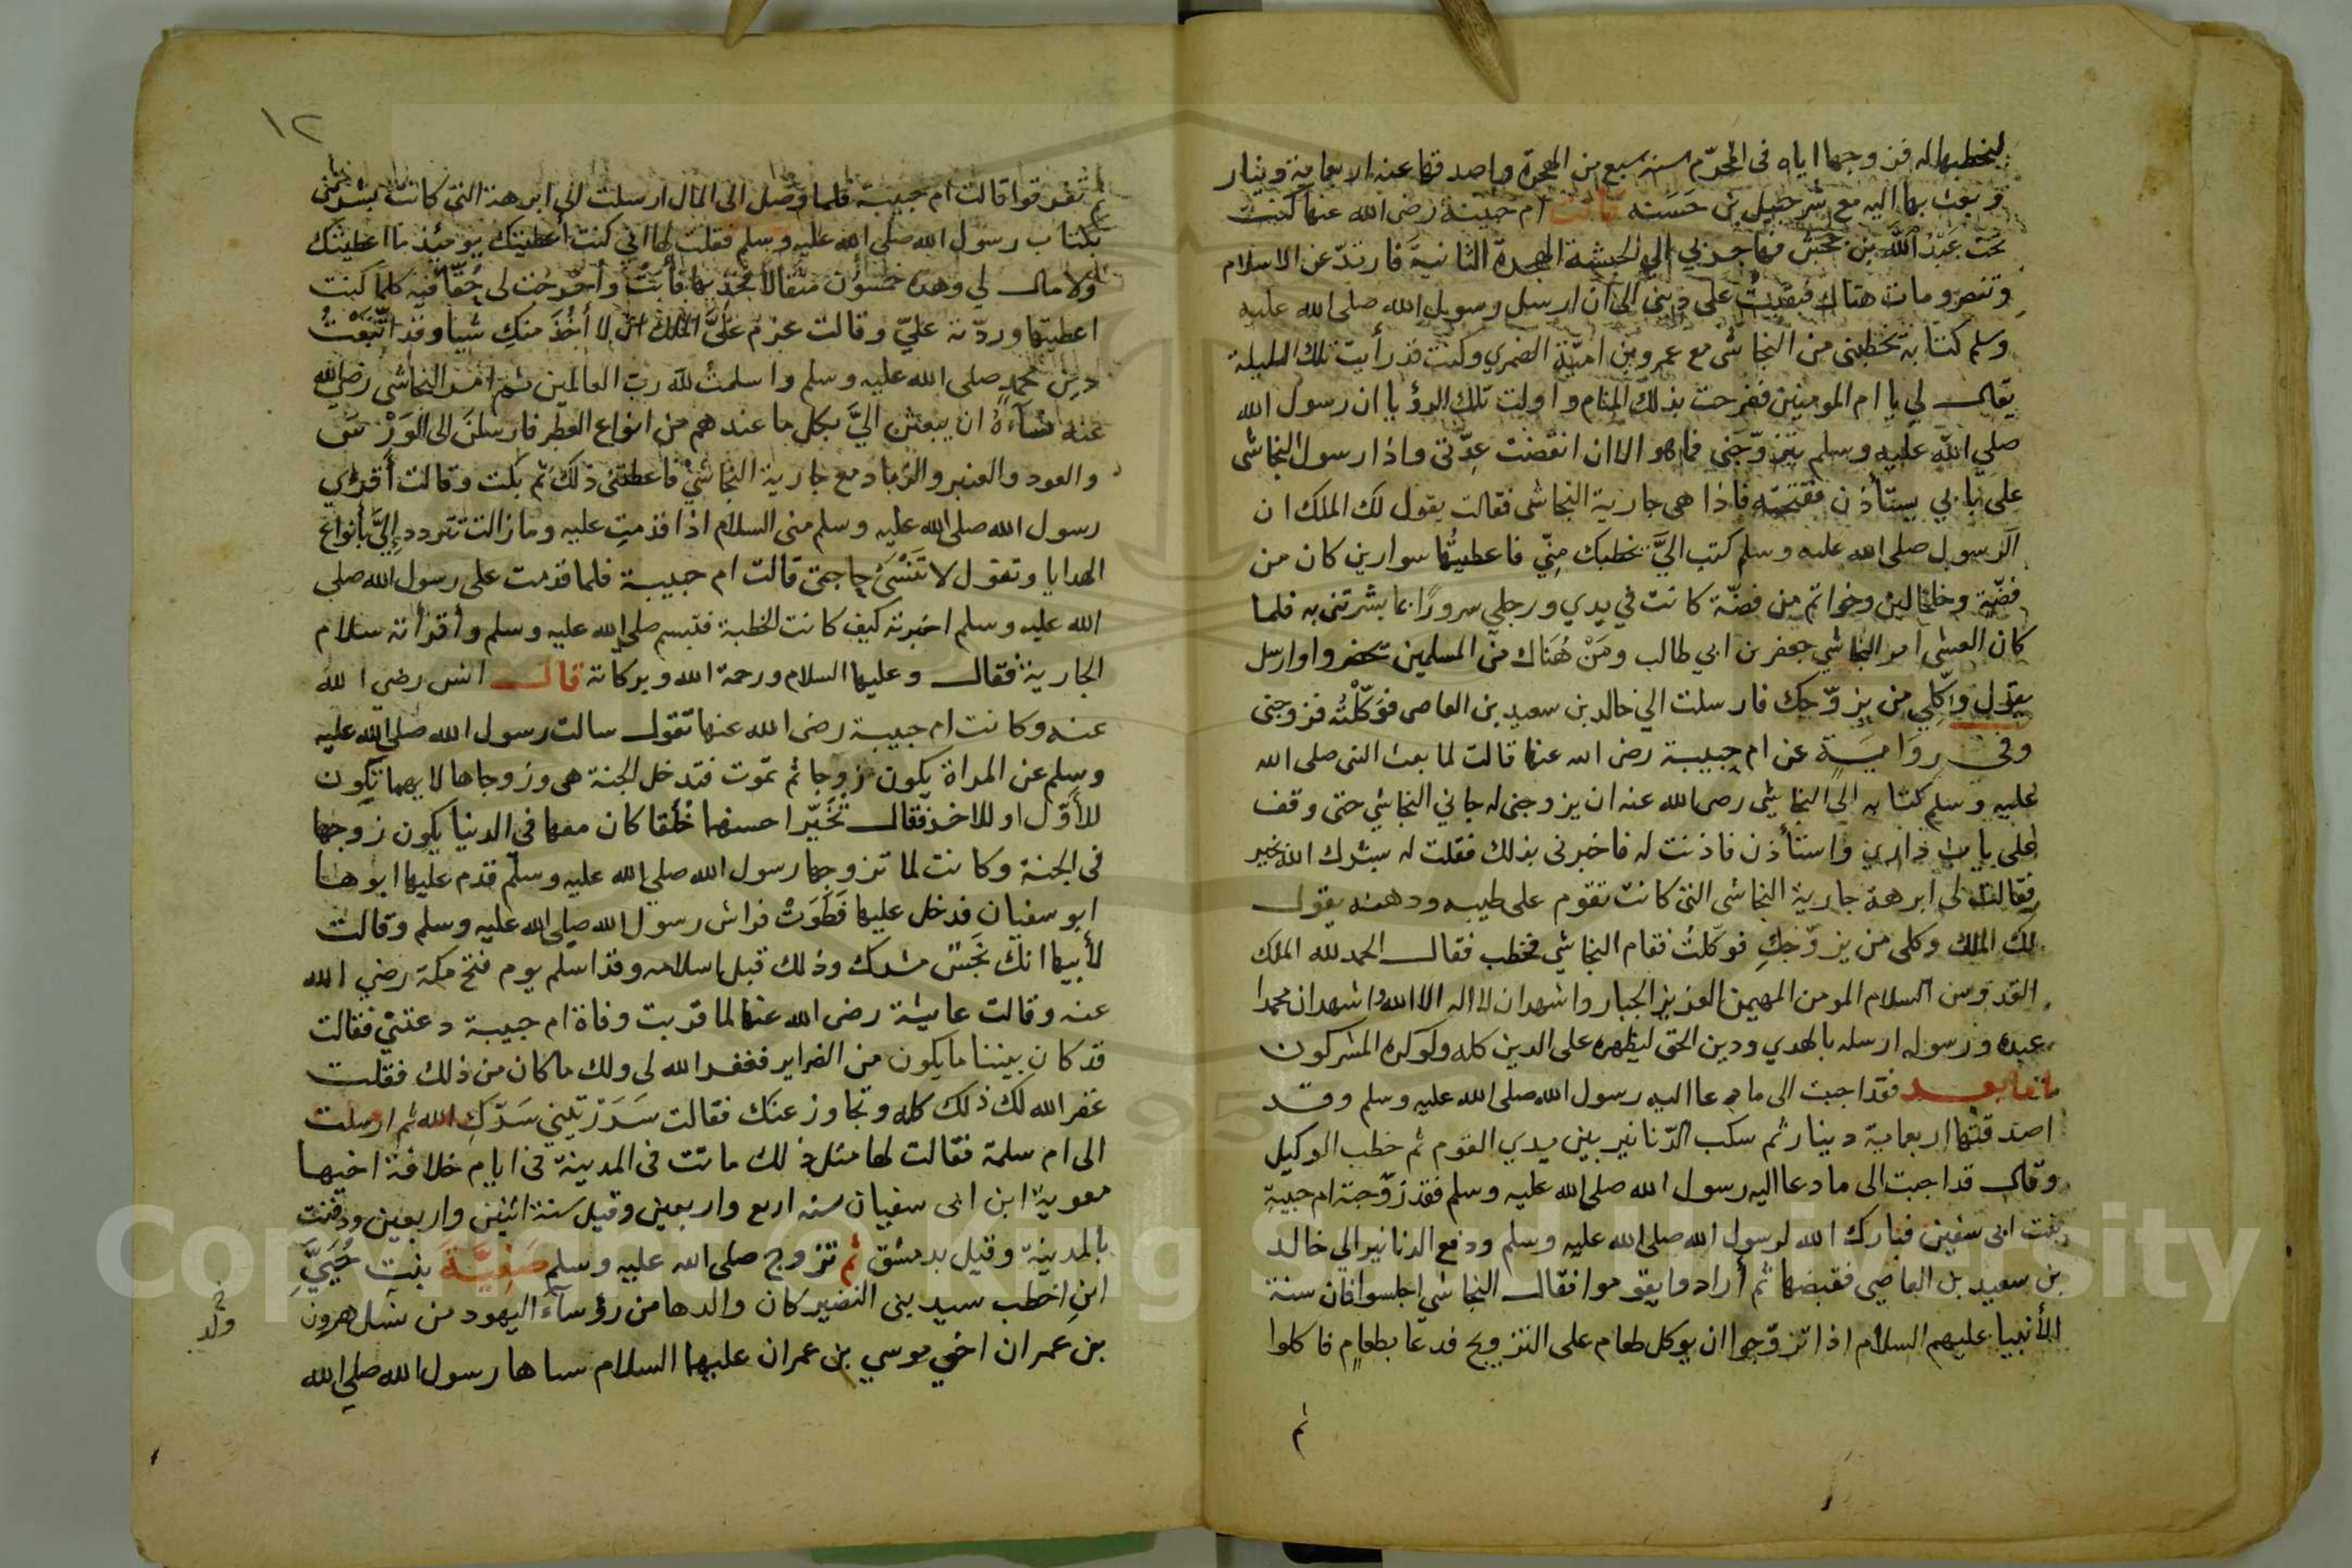 ليخطبها له فزوجها اياه في المحرّم سنة سبع من الهجرة واصدقها عنه اربعماية دينار
وبعث بها اليه مع شرحبيل بن حَسَنه قالت ام حبيبة رضي الله عنها كنت
تحت عَبْدُ اللَّه بن جحش فهاجر بي الي الحبشة الهجرة الثانية فارتدّ عن الاسلام
وتنصرو مات هناك فبقيتُ على ديني الى ان ارسل رسول الله صلى الله عليه
وسلم كتابه تخطبنى من النجاشى مع عمرو بن اميّة الضمري وكنت قد رأيت تلك الليلة
يقال لي يا ام المومنين ففرحت بذلك المنام واولت تلك الرؤيا ان رسول الله
صلي اللّه عليه وسلم يتزوّجني فما هو الا ان انقضت عِدّتي واذا رسول النجاشى
على بابي يستأذن ففتحته فاذا هى جارية النجاشى فقالت يقول لك الملك ان
الرسول صلى الله عليه وسلم كتب اليَّ يخطبك مِنِّي فاعطيتُها سوارين كان من
فضّة وخلخالين وخواتم من فضّة كانت في يدي ورجلي سرورًا بما بشرتني به فلما
كان العشى امر النجاشي جعفر بن ابي طالب ومَنْ هُنَاك من المسلمين تحضروا وارسل
يقول وكِّلي من يزوّجك فارسلت الي خالد بن سعيد بن العاصى فوَكّلْتُه فزوجنى
وفي روَاية عن ام حبيبة رضى الله عنها قالت لما بعث النبى صلى الله
عليه وسلم كتابه الي النجاشي رضى الله عنه ان يزوجنى له جاني النجاشي حتى وقف
على باب داري واستأذن فاذنت له فاخبرنى بذلك فقلت له بشرك الله بخير
فقالت لى ابرهة جارية النجاشى التى كانت تقوم على طيبه ودهنه يقول
لك الملك وكلى من يزوّجكِ فوكّلتُ فقام النجاشي فخطب فقال الحمد لله الملك
القدوس السلام المومن المهيمن العزيز الجبار واشهد ان لا اله الا الله واشهد ان محمدا
عبده ورسوله ارسله بالهدي ودين الحق ليظهره على الدين كله ولو كره المشركون
اما بعد فقد اجبت الى ما دعا اليه رسول الله صلى الله عليه وسلم وقد
اصدقتُها اربعماية دينار ثم سكب الدّنانير بين يدي القوم ثم خطب الوكيل
وقال قد اجبت الى ما دعا اليه رسول الله صلى الله عليه وسلم فقد زوّجته ام حبيبة
بنت ابى سفين فبارك الله لرسول الله صلى الله عليه وسلم ودفع الدنانير الي خالد
بن سعيد بن العاصي فقبضها ثم أرادوا يقوموا فقال النجاشي اجلسوا فان سنة
الأنبيا عليهم السلام اذا تزوّجوا ان يوكل طعام على التزويج فدعا بطعام فاكلوا
ثم
١٢
ثم تفرقوا قالت ام حبيبة فلما وصل الى المال ارسلت الى ابرهة التى كانت بشرتنى
بكتاب رسول الله صلى الله عليه وسلم فقلت لها اني كنت أعطيتك يومئذ ما اعطيتك
ولا مال لي وهذه خمسون مثقالا فخذيها فأبت وأخرجت لى حُقّا فيه كلما كنت
اعطيتها وردّته عليّ وقالت عزم عليَّ الملك ان لا أخُذَ منكِ شيا وقد اتّبَعْتُ
دين محمدٍ صلى الله عليه وسلم واسلمتُ للّه رب العالمين ثم امر النجاشى رضى الله
عنه نسآءَهُ ان يبعثن اليَّ بكل ما عندهم من انواع العطر فارسلنَ الى الوَرْس
والعود والعنبر والزباد مع جارية النجاشي فاعطتني ذلك ثم بكت وقالت أقرئي
رسول الله صلى الله عليه وسلم منى السلام اذا قدمتِ عليه وما زالت تتردد إليَّ بأنواع
الهدايا وتقول لا تَنْسَيْ حاجتى قالت ام حبيبة فلما قدمت على رسول الله صلى
الله عليه وسلم اخبرته كيف كانت الخطبة فتبسم صلى الله عليه وسلم وأقرأته سلام
الجارية فقال وعليها السلام ورحمة الله وبركاته قال انس رضي الله
عنه وكانت ام حبيبة رضى الله عنها تقول سالت رسول الله صلى الله عليه
وسلم عن المراة يكون زوجا ثم تموت فتدخل الجنة هى وزوجاها لايهما تكون
للأوّل او للاخر فقال تُخَيّر احسنهما خُلُقا كان معها فى الدنيا يكون زوجها
فى الجنة وكانت لما تزوجها رسول الله صلي الله عليه وسلم قدم عليها ابوها
ابو سفيان فدخل عليها فَطَوَتْ فراش رسول الله صلى الله عليه وسلم وقالت
لأبيها انك نَجَسٌ مشرك وذلك قبل اسلامه وقد اسلم يوم فتح مكة رضي الله
عنه وقالت عايشة رضى الله عنها لما قربت وفاة ام حبيبة دعتني فقالت
قد كان بيننا ما يكون من الضراير فغفر الله لى ولك ما كان من ذلك فقلت
غفر الله لك ذلك كله وتجاوز عنك فقالت سَرَرْتِيني سَرّكِ الله ثم ارسلت
الى ام سلمة فقالت لها مثل ذلك ماتت فى المدينة فى ايام خلافة اخيها
معوية ابن ابى سفيان سنه اربع واربعين وقيل سنة اثنين واربعين ودفنت
بالمدينة وقيل بدمشق ثم تزوج صلى الله عليه وسلم صَفِيَّةَ بنت حُيَيِّ
ابنِ اخطب سيد بنى النضير كان والدها من رؤسآء اليهود من نسل هرون
بن عمران اخي موسي بن عمران عليهما السلام سباها رسول الله صلى الله
ولد
Copyright © King Saud University